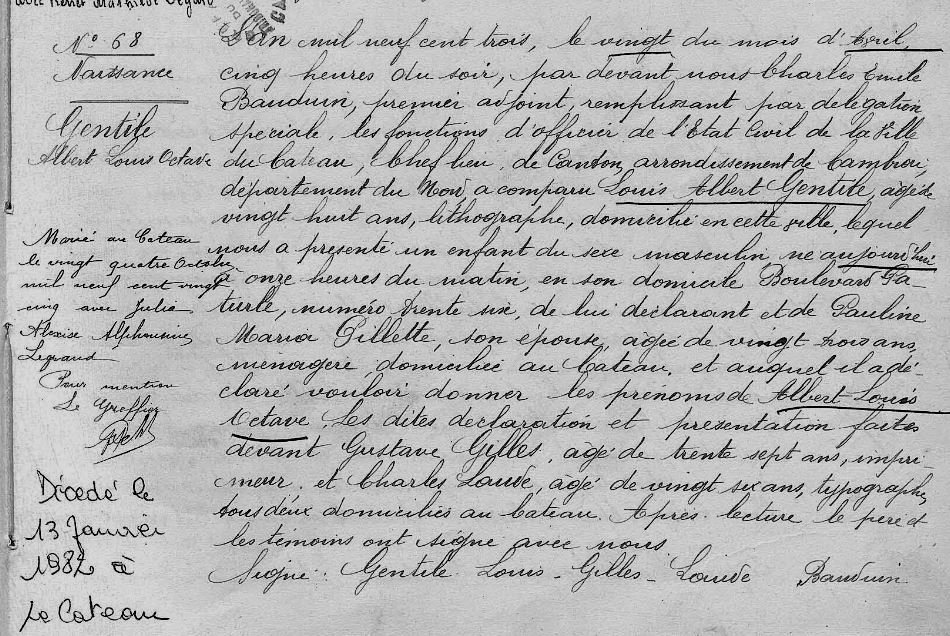 avec
N° 68
Naissance
Gentile
Albert Louis Octave
Marié au Cateau
le vingt quatre Octobre
mil neuf cent vingt
cinq avec Julia
Alexise Alphonsine
Legrand
Pour mention
Le Greffier
Décédé le
13 Janvier
1982 à
Le Cateau
L'an mil neuf cent trois, le vingt du mois d'Avril,
cinq heures du soir, par devant nous Charles Emile
Bauduin, premier adjoint, remplissant par delegation
speciale, les fonctions d'officier de l'Etat Civil de la Ville
du Cateau, Chef lieu de Canton, arrondissement de Cambrai,
département du Nord, a comparu Louis Albert Gentile, agé de
vingt huit ans, lithographe, domicilié en cette ville, lequel
nous a presenté un enfant du sexe masculin, né aujourd'hui
à onze heures du matin, en son domicile Boulevard Pa-
turle, numéro trente six, de lui declarant et de Pauline
Maria Gillette, son épouse, agée de vingt trois ans,
ménagère, domiciliée au Cateau, et auquel il a dé-
claré vouloir donner les prénoms de Albert Louis
Octave. Les dites declaration et presentation faites
devant Gustave Gilles, agé de trente sept ans, impri-
meur, et Charles Laude, agé de vingt six ans, typographe,
tous deux domiciliés au Cateau. Après lecture le père et
les témoins ont signé avec nous
Signé: Gentile Louis - Gilles - Laude Bauduin